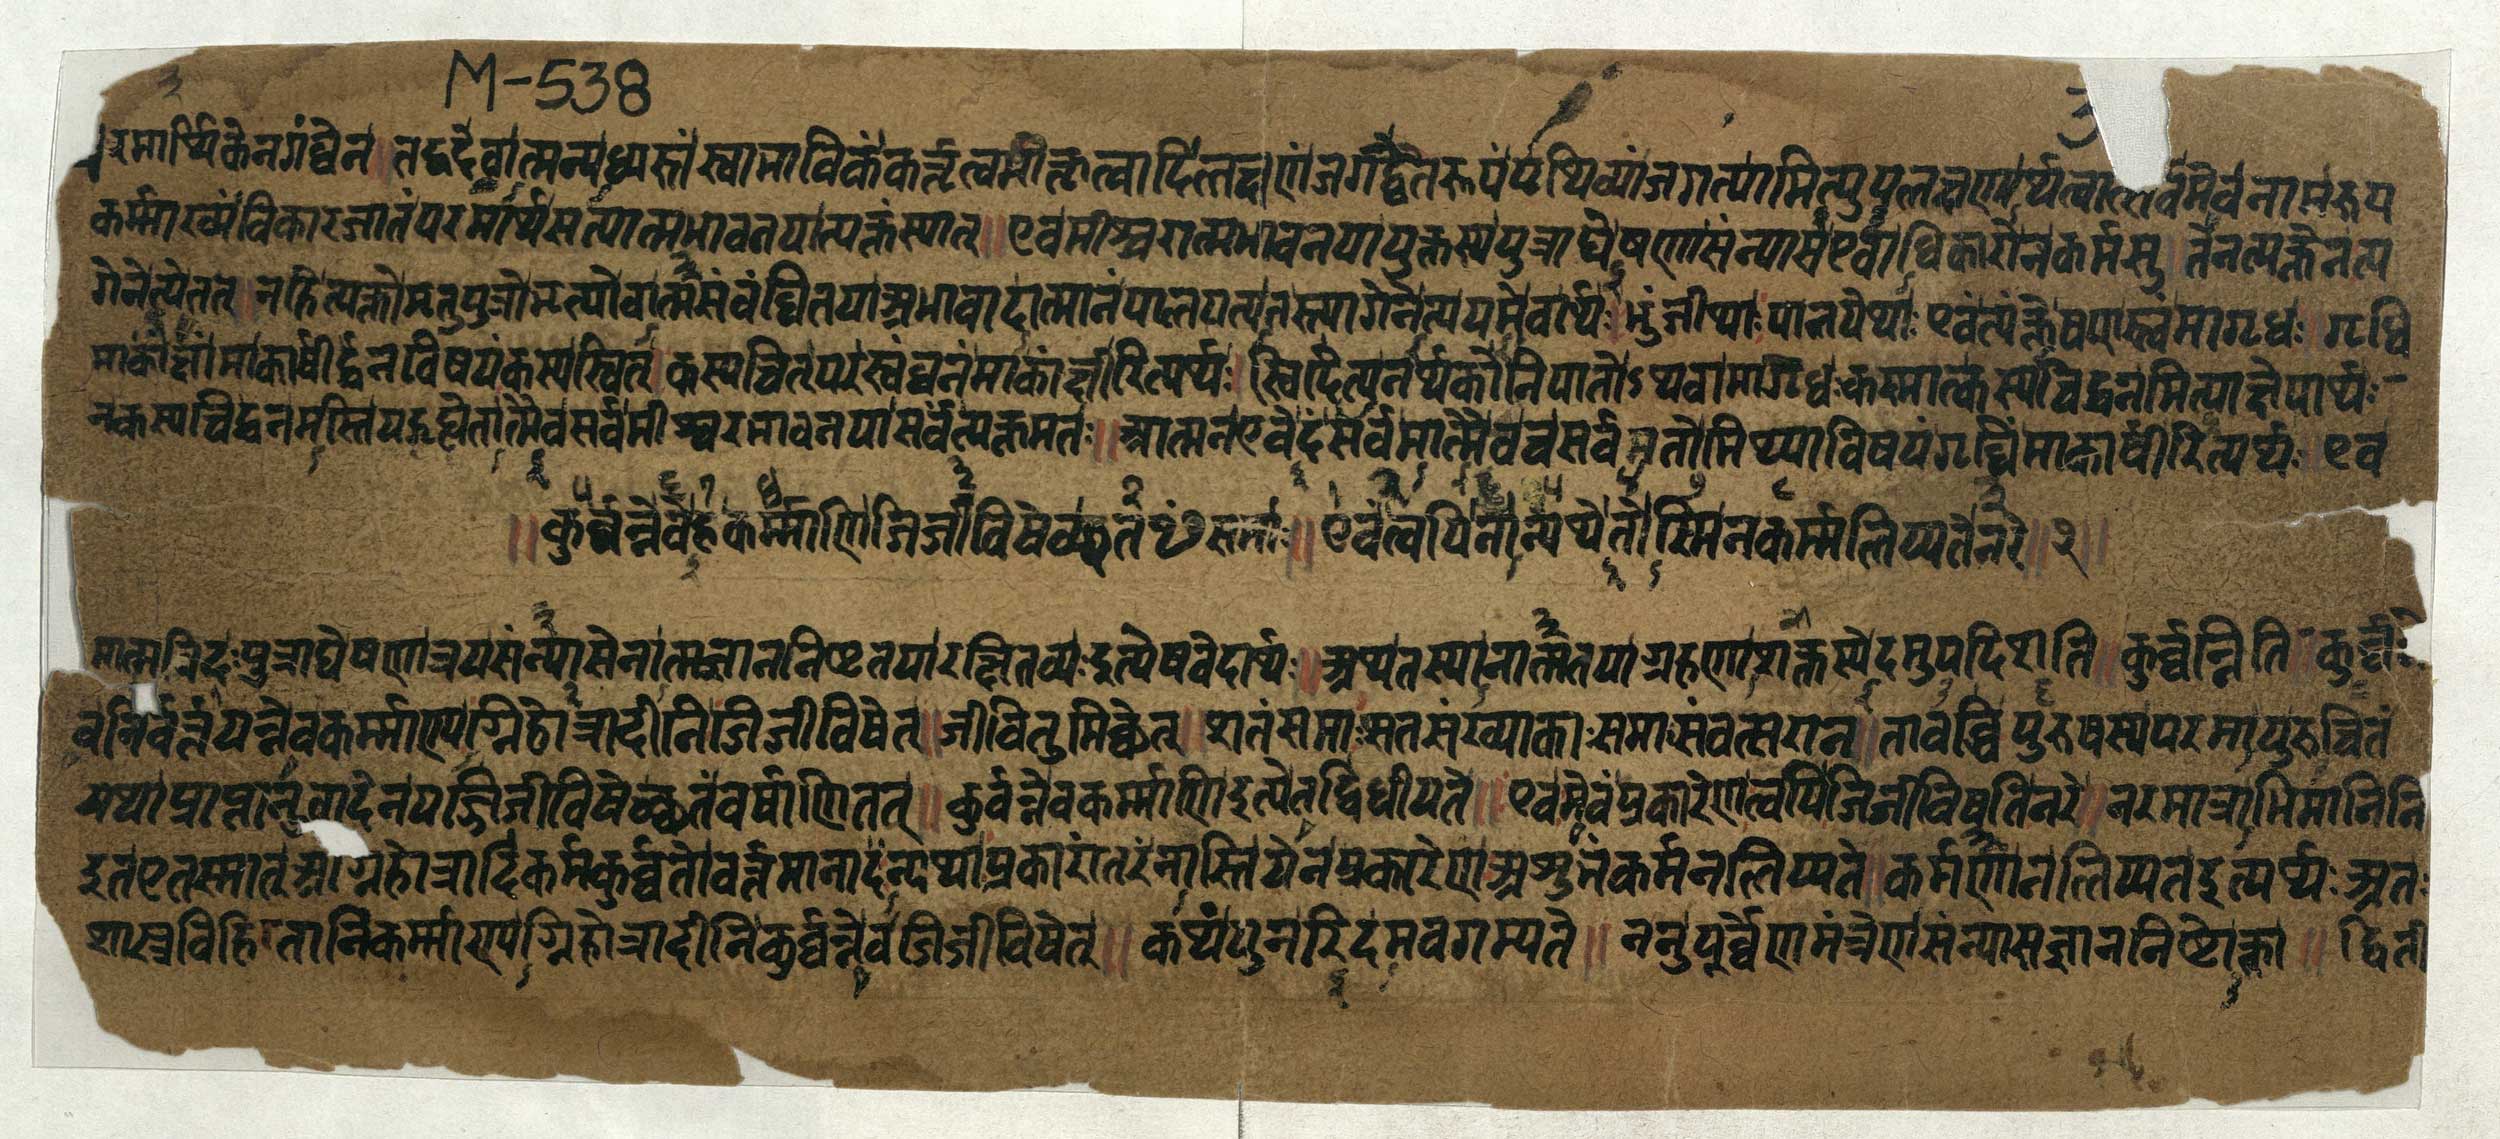 M-538
3
रमार्थिकेनगंधेन॥तद्वदेवात्मन्यध्यस्तंस्वाभाविकंकर्तृत्वभोक्तृत्वादिलक्षणंजगद्द्वैतरूपंपृथिव्यांजगत्यामित्युपलक्षणार्थत्वात्सर्वमेवनामरूप
कर्म्माख्यंविकारजातंपरमार्थसत्यात्मभावनयात्यक्तंस्यात्॥एवमीश्वरात्मभावनयायुक्तस्यपुत्राद्येषणासंन्यासएवाधिकारोनकर्मसु॥तेनत्यक्तेनत्या
गेनेत्येतत्॥नहित्यक्तोमृतपुत्रोभृत्योवात्मसंबंधितयाअभावादात्मानंपालयत्यतस्त्यागेनेत्ययमेवार्थः॥भुंजीथाःपालयेथाः॥एवंत्यक्तैषणस्त्वंमागृधः॥गृधि
माकांक्षांमाकार्षीर्द्धनविषयंकस्यस्वित्॥कस्यचित्परस्वंधनंमाकांक्षीरित्यर्थः॥स्विदित्यनर्थकोनिपातोऽथवामागृधःकस्मात्कस्यचिद्धनमित्याक्षेपार्थः
नकस्यचिद्धनमस्तियद्गृध्येतात्मैवसर्वमीश्वरभावनयासर्वंत्यक्तमतः॥आत्मनएवेदंसर्वमात्मैवचसर्वमतोमिथ्याविषयंगृधिंमाकार्षीरित्यर्थः॥एव
॥कुर्व्वन्नेवेहकर्म्माणिजिजीविषेच्छतꣳसमाः॥एवंत्वयिनान्यथेतोस्तिनकर्म्मलिप्यतेनरे॥२॥
मात्मविदःपुत्राद्येषणात्रयसंन्यासेनात्मज्ञाननिष्ठतयारक्षितव्यःइत्येषवेदार्थः॥अथेतस्यानात्मतयाग्रहणाशक्तस्येदमुपदिशति॥कुर्व्वन्निति॥कुर्व्वं
वनिर्वर्त्तयन्नेवकर्म्माण्यग्निहोत्रादीनिजिजीविषेत्॥जीवितुमिच्छेत्॥शतंसमाःसतसंख्याकाःसमाःसंवत्सरान्॥तावद्धिपुरुषस्यपरमायुरुचितं
यथाप्राप्तानुवादेनयज्जिजीविषेच्छतंवर्षाणितत्॥कुर्वन्नेवकर्म्माणिइत्येतद्विधीयते॥एवमेवंप्रकारेणत्वयिजिजीविषतिनरे॥नरमात्राभिमानिनि
इतएतस्मात्अग्निहोत्रादिकर्मकुर्व्वतोवर्त्तमानादन्यथाप्रकारांतरंनास्तियेनप्रकारेणअशुभंकर्मनलिप्यते॥कर्मणानलिप्यतइत्यर्थः॥अतः
शास्त्रविहितानिकर्म्माण्यग्निहोत्रादीनिकुर्व्वन्नेवजिजीविषेत्॥कथंपुनरिदमवगम्यते॥ननुपूर्व्वेणमंत्रेणसंन्यासज्ञाननिष्टोक्ता॥द्विती